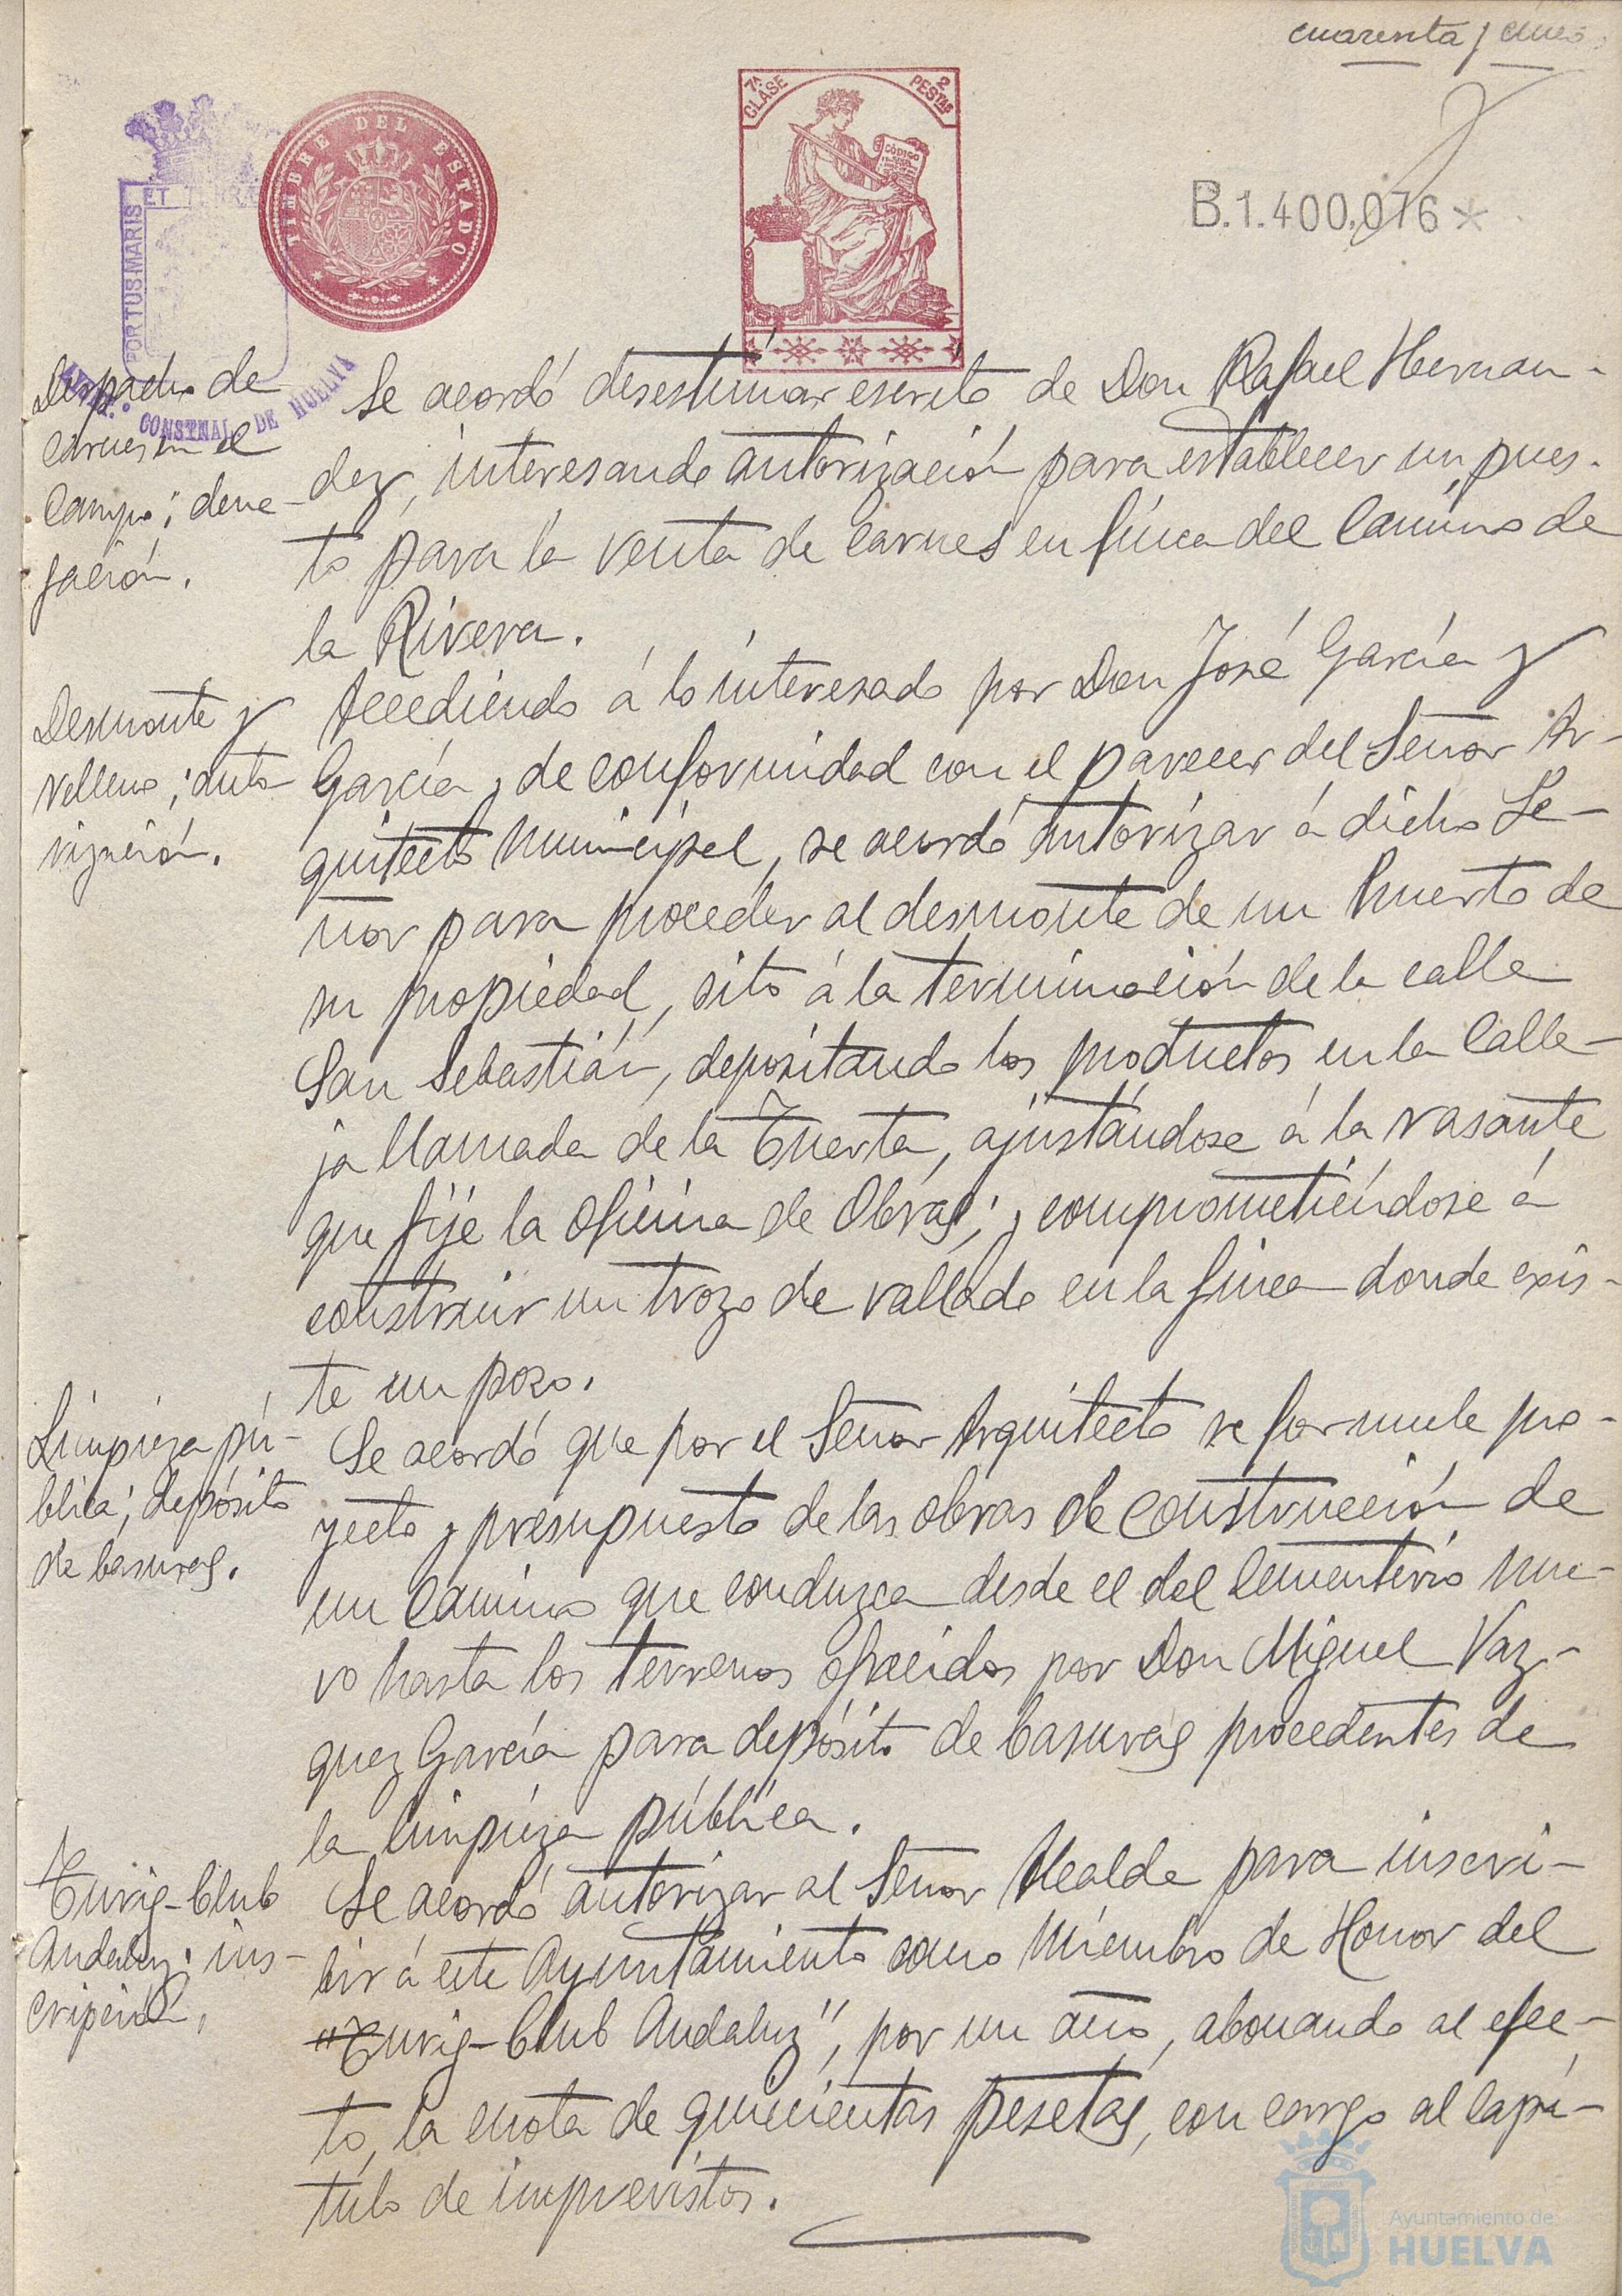 cuarenta y cinco
7ª CLASE
2 PESTAS
CÓDIGO
TIMBRE DEL ESTADO
PORTUS MARIS
ET TERRÆ
CONSTNAL DE HUELVA
B.1.400,076*
Despacho de
carnes en el
Campo; dene-
gación.
Se acordó desestimar escrito de Don Rafael Hernan-
dez, interesando autorización para establecer un pues-
to para la venta de carnes en finca del Camino de
la Rivera.
Desmonte y
relleno; auto-
rización.
Accediendo á lo interesado por Don José García y
García y de conformidad con el parecer del Señor Ar-
quitecto Municipal, se acordó autorizar á dicho Se-
ñor para proceder al desmonte de un Huerto de
su propiedad, sito á la terminación de la calle
San Sebastián, depositando los productos en la Calle-
ja llamada de la Tuerta, ajustándose á la rasante
que fije la Oficina de Obras; y comprometiéndose á
construir un trozo de vallado en la finca donde exis-
te un pozo.
Limpieza pú-
blica; depósito
de basuras.
Se acordó que por el Señor Arquitecto se formule pro-
yecto y presupuesto de las obras de construcción de
un camino que conduzca desde el del Cementerio Nue-
vo hasta los terrenos ofrecidos por Don Miguel Vaz-
quez García para depósito de basuras procedentes de
la limpieza pública.
Turig-Club
Andaluz; ins-
cripción.
Se acordó autorizar al Señor Alcalde para inscri-
bir á este Ayuntamiento como Miembro de Honor del
"Turig-Club Andaluz", por un año, abonando al efec-
to, la cuota de quinientas pesetas, con cargo al Capí-
tulo de imprevistos.
Ayuntamiento de
HUELVA